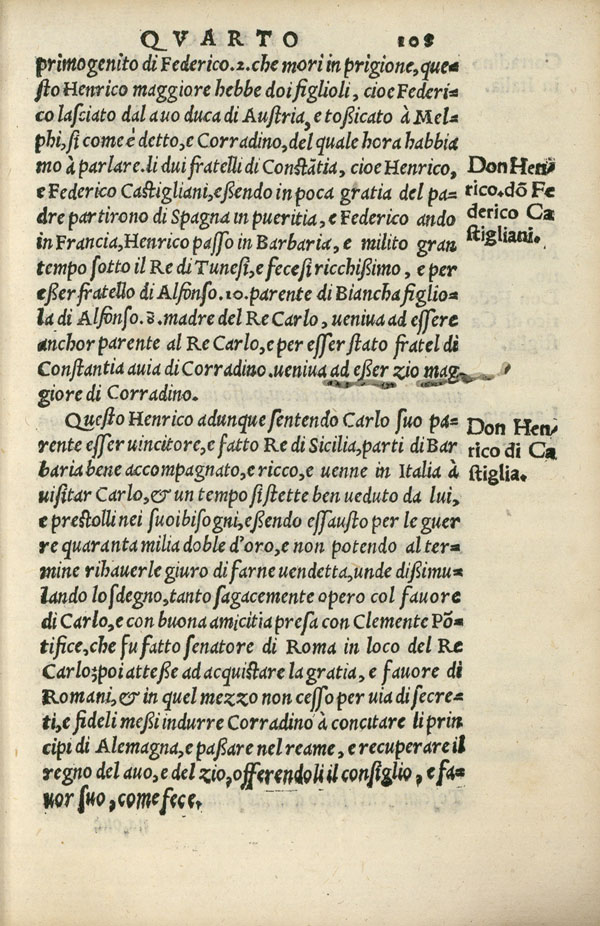 QVARTO 108
primogenito di Federico.2.che mori in prigione,que=
sto Henrico maggiore hebbe doi figlioli, cioe Federi=
co lasciato dal auo duca di Austria, e toßicato à Mel=
phi,si come è detto, e Corradino,del quale hora habbia
mo à parlare.li dui fratelli di Constãtia, cioe Henrico,
e Federico Castigliani,eßendo in poca gratia del pa=
dre partirono di Spagna in pueritia, e Federico ando
in Francia,Henrico passo in Barbaria, e milito gran
tempo sotto il Re di Tunesi,e fecesi ricchißimo, e per
eßer fratello di Alfonso.10.parente di Biancha figlio=
la di Alfonso.8.madre del Re Carlo, ueniua ad essere
anchor parente al Re Carlo,e per esser stato fratel di
Constantia auia di Corradino.ueniua ad eßer zio mag=
giore di Corradino.
Don Hen/
rico.dõ Fe
derico Ca
stigliani.
Questo Henrico adunque sentendo Carlo suo pa=
rente esser uincitore,e fatto Re di Sicilia,parti di Bar
baria bene accompagnato,e ricco,e uenne in Italia à
uisitar Carlo,& un tempo si stette ben ueduto da lui,
e prestolli nei suoi bisogni,eßendo essausto per le guer
re quaranta milia doble d'oro,e non potendo al ter=
mine rihauerle giuro di farne uendetta,unde dißimu=
lando lo sdegno,tanto sagacemente opero col fauore
di Carlo,e con buona amicitia presa con Clemente Põ=
tifice,che fu fatto senatore di Roma in loco del Re
Carlo;poi atteße ad acquistare la gratia, e fauore di
Romani,& in quel mezzo non cesso per uia di secre=
ti,e fideli meßi indurre Corradino à concitare li prin
cipi di Alemagna,e paßare nel reame, e recuperare il
regno del auo,e del zio,offerendoli il consiglio, e fa=
uor suo, come fece.
Don Hen/
rico di Ca
stiglia.